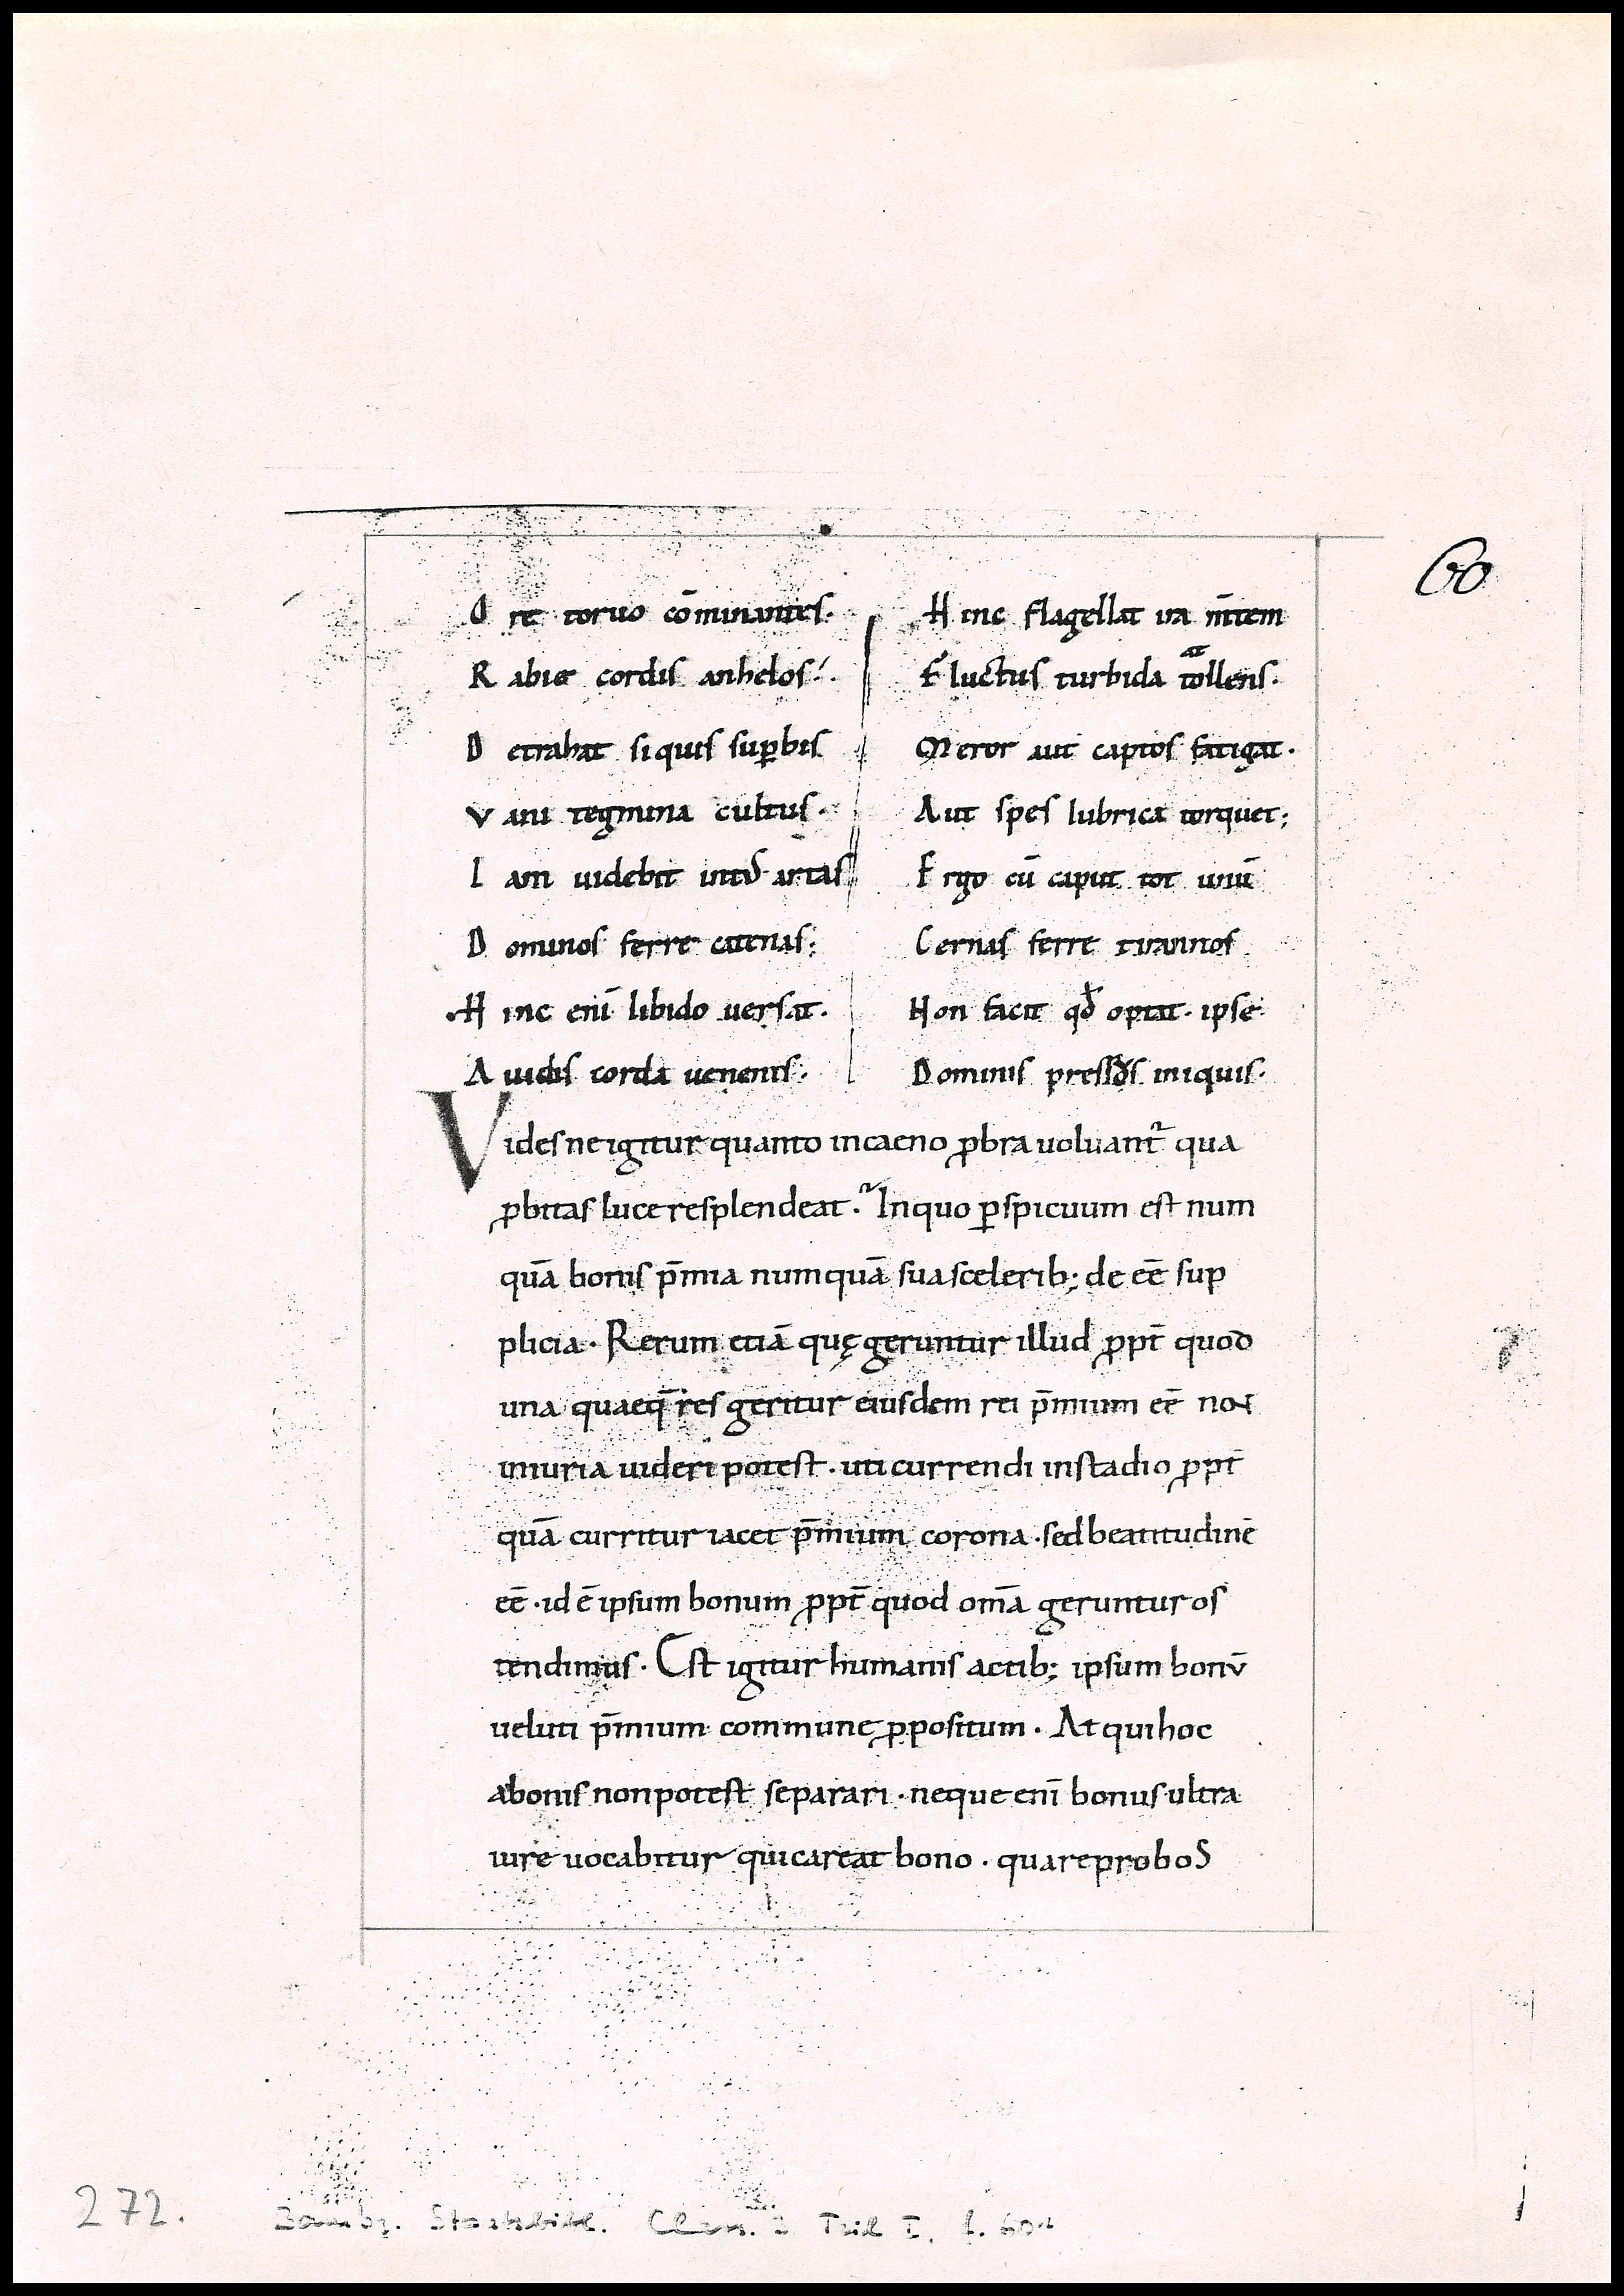 60
O re toruo cōminantes·
R abie cordis anhelos·
D etrahat siquis suꝑbis
V ani tegmina cultus·
I am uidebit intꝰ artas
D ominos ferre catenas;
H inc eni̅ libido uersat·
A uidis corda uenenis·
H inc flagellat ira m̅tem
Fluctus turbida tollens·
at
Meror aut captos fatigat·
A ut spes lubrica torquet;
E rgo cū caput tot unū
Cernas ferre tirannos
Non facit qđ optat· ipse
Dominis pressꝰs iniquis·
Videsne igitur quanto incaeno ꝓbra uoluant᷑ qua
ꝓbitas luce resplendeat? In quo ꝑspicuum est num
quā bonis p̄mia numquā sua scelerib; de eē sup
plicia· Rerum etiā quę geruntur illud ꝓpt̄ quod
una quaeq̄ res geritur eiusdem rei p̄mium eē non
iniuria uideri potest· uti currendi in stadio ꝓpt̄
quā curritur iacet p̄mium corona· sed beatitudinē
eē· id ē ipsum bonum ꝓpt̄ quod om̄a geruntur os
tendimus· Est igitur humanis actib; ipsum bonū
ueluti p̄mium commune ꝓpositum· Atqui hoc
abonis non potest separari· neque enī bonus ultra
iure uocabitur qui careat bono· quare probos
272.
Bambg. Staatsbibl. Class. 3 Teil I, f. 60r